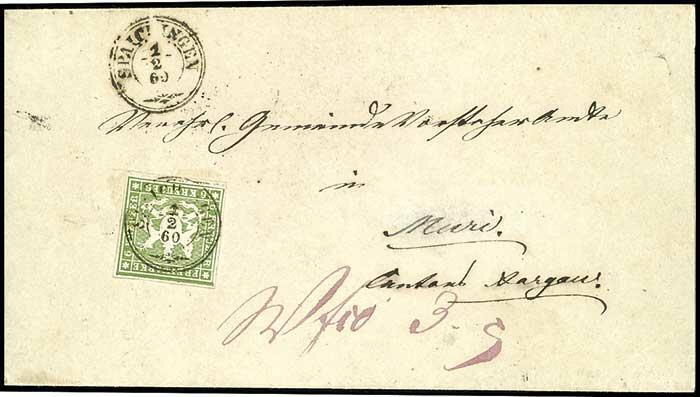 SPAICHINGEN
1
2
60
Verehrl. Gemeinde Vorsteher Amte
in
Muri.
Canton Aargau.
6 KREUZER
FREIMARKE
1
2
60
Wfco 3